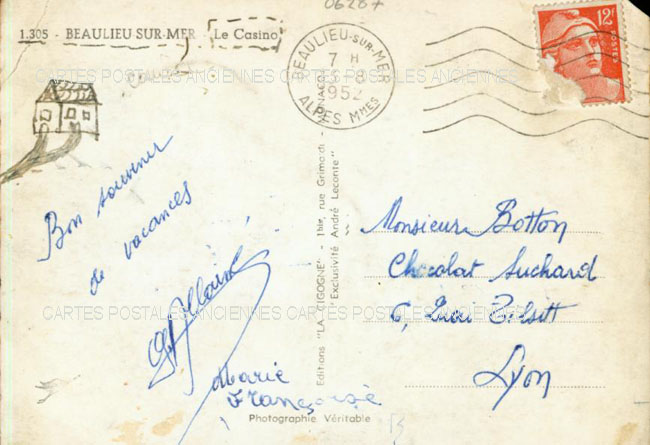 06287
1.305 - BEAULIEU SUR-MER Le Casino
BEAULIEU-SUR-MER
7 H
8
1952
ALPES Mmes
12F
POSTES
CARTES POSTALES ANCIENNES CARTES POSTALES ANCIENNES
Bon souvenir
de vacances
Marie
Françoise
Editions "LA CIGOGNE" - 1bis, rue Grimaldi -
"Exclusivité André Leconte"
Monsieur Botton
Chocolat Suchard
6, Quai Tilsitt
Lyon
CARTES POSTALES ANCIENNES CARTES POSTALES ANCIENNES
Photographie Véritable